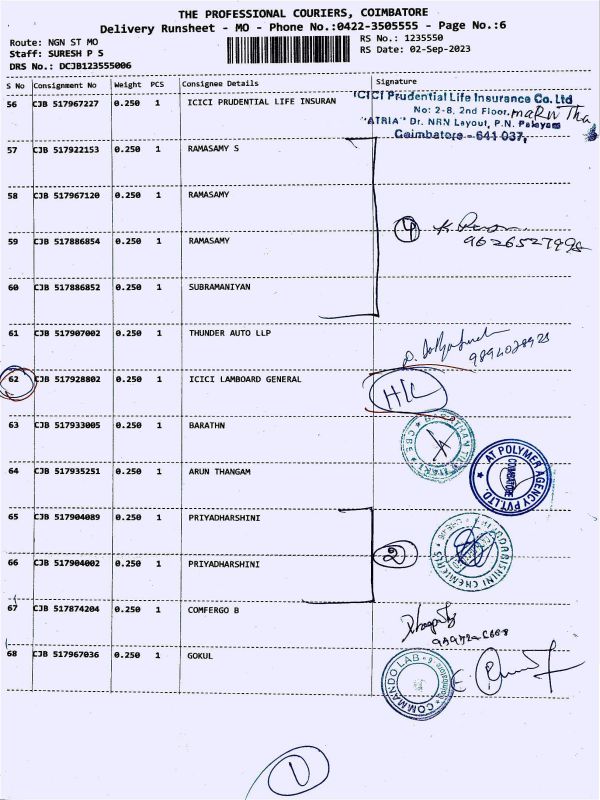 THE PROFESSIONAL COURIERS, COIMBATORE
Delivery Runsheet - MO - Phone No.:0422-3505555 - Page No.:6
Route: NGN ST MO
RS No.: 1235550
Staff: SURESH P S
RS Date: 02-Sep-2023
DRS No.: DCJB123555006
S No Consignment No Weight PCS Consignee Details Signature
56 CJB 517967227 0.250 1 ICICI PRUDENTIAL LIFE INSURAN
ICICI Prudential Life Insurance Co. Ltd
No: 2-8, 2nd Floor,
"ATRIA" Dr. NRN Layout, P.N. Palayam
Coimbatore - 641 037,
57 CJB 517922153 0.250 1 RAMASAMY S
58 CJB 517967120 0.250 1 RAMASAMY
4
59 CJB 517886854 0.250 1 RAMASAMY
60 CJB 517886852 0.250 1 SUBRAMANIYAN
61 CJB 517907002 0.250 1 THUNDER AUTO LLP
62 CJB 517928802 0.250 1 ICICI LAMBOARD GENERAL
H/C
63 CJB 517933005 0.250 1 BARATHN
64 CJB 517935251 0.250 1 ARUN THANGAM
AT POLYMER AGENCY PVT.LTD.
COIMBATORE
65 CJB 517904089 0.250 1 PRIYADHARSHINI
2
66 CJB 517904002 0.250 1 PRIYADHARSHINI
67 CJB 517874204 0.250 1 COMFERGO B
68 CJB 517967036 0.250 1 GOKUL
COMMANDO LAB
1